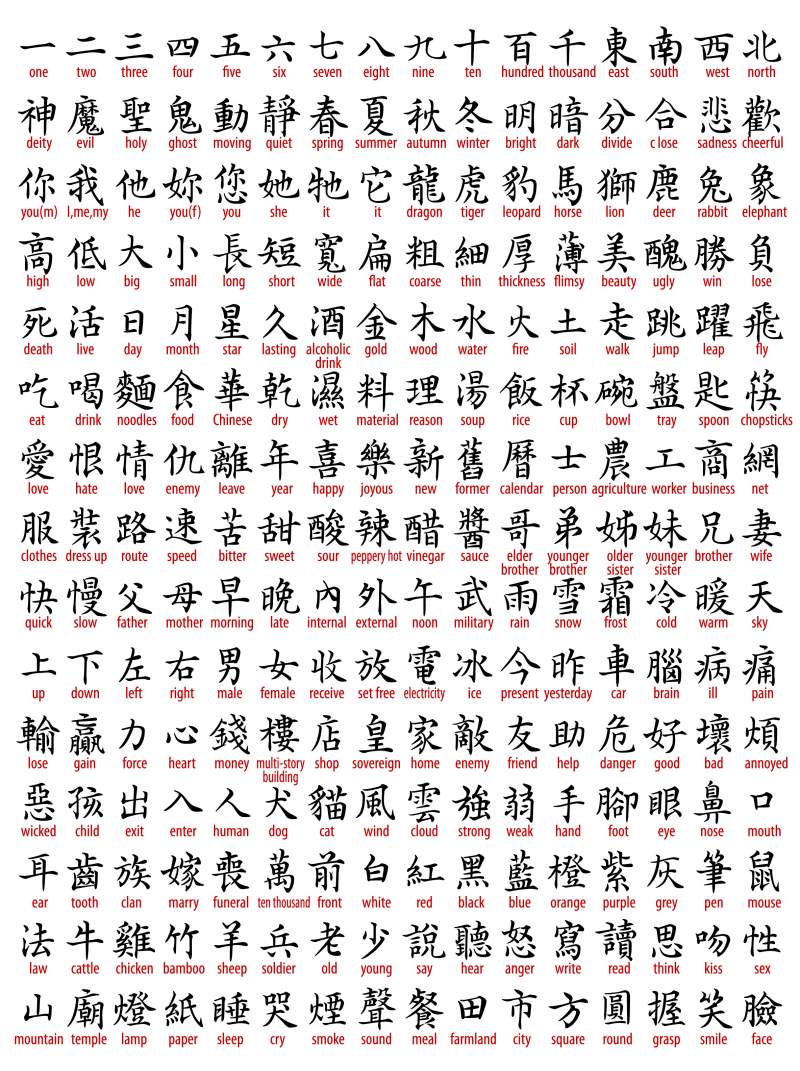 一 二 三 四 五 六 七 八 九 十 百 千 東 南 西 北
one two three four five six seven eight nine ten hundred thousand east south west north
神 魔 聖 鬼 動 靜 春 夏 秋 冬 明 暗 分 合 悲 歡
deity evil holy ghost moving quiet spring summer autumn winter bright dark divide c lose sadness cheerful
你 我 他 妳 您 她 牠 它 龍 虎 豹 馬 獅 鹿 兔 象
you(m) I,me,my he you(f) you she it it dragon tiger leopard horse lion deer rabbit elephant
高 低 大 小 長 短 寬 扁 粗 細 厚 薄 美 醜 勝 負
high low big small long short wide flat coarse thin thickness flimsy beauty ugly win lose
死 活 日 月 星 久 酒 金 木 水 火 土 走 跳 躍 飛
death live day month star lasting alcoholic gold wood water fire soil walk jump leap fly
drink
吃 喝 麵 食 華 乾 濕 料 理 湯 飯 杯 碗 盤 匙 筷
eat drink noodles food Chinese dry wet material reason soup rice cup bowl tray spoon chopsticks
愛 恨 情 仇 離 年 喜 樂 新 舊 曆 士 農 工 商 網
love hate love enemy leave year happy joyous new former calendar person agriculture worker business net
服 裝 路 速 苦 甜 酸 辣 醋 醬 哥 弟 姊 妹 兄 妻
clothes dress up route speed bitter sweet sour peppery hot vinegar sauce elder younger older younger brother wife
brother brother sister sister
快 慢 父 母 早 晚 內 外 午 武 雨 雪 霜 冷 暖 天
quick slow father mother morning late internal external noon military rain snow frost cold warm sky
上 下 左 右 男 女 收 放 電 冰 今 昨 車 腦 病 痛
up down left right male female receive set free electricity ice present yesterday car brain ill pain
輸 贏 力 心 錢 樓 店 皇 家 敵 友 助 危 好 壞 煩
lose gain force heart money multi-story shop sovereign home enemy friend help danger good bad annoyed
building
惡 孩 出 入 人 犬 貓 風 雲 強 弱 手 腳 眼 鼻 口
wicked child exit enter human dog cat wind cloud strong weak hand foot eye nose mouth
耳 齒 族 嫁 喪 萬 前 白 紅 黑 藍 橙 紫 灰 筆 鼠
ear tooth clan marry funeral ten thousand front white red black blue orange purple grey pen mouse
法 牛 雞 竹 羊 兵 老 少 說 聽 怒 寫 讀 思 吻 性
law cattle chicken bamboo sheep soldier old young say hear anger write read think kiss sex
山 廟 燈 紙 睡 哭 煙 聲 餐 田 市 方 圓 握 笑 臉
mountain temple lamp paper sleep cry smoke sound meal farmland city square round grasp smile face